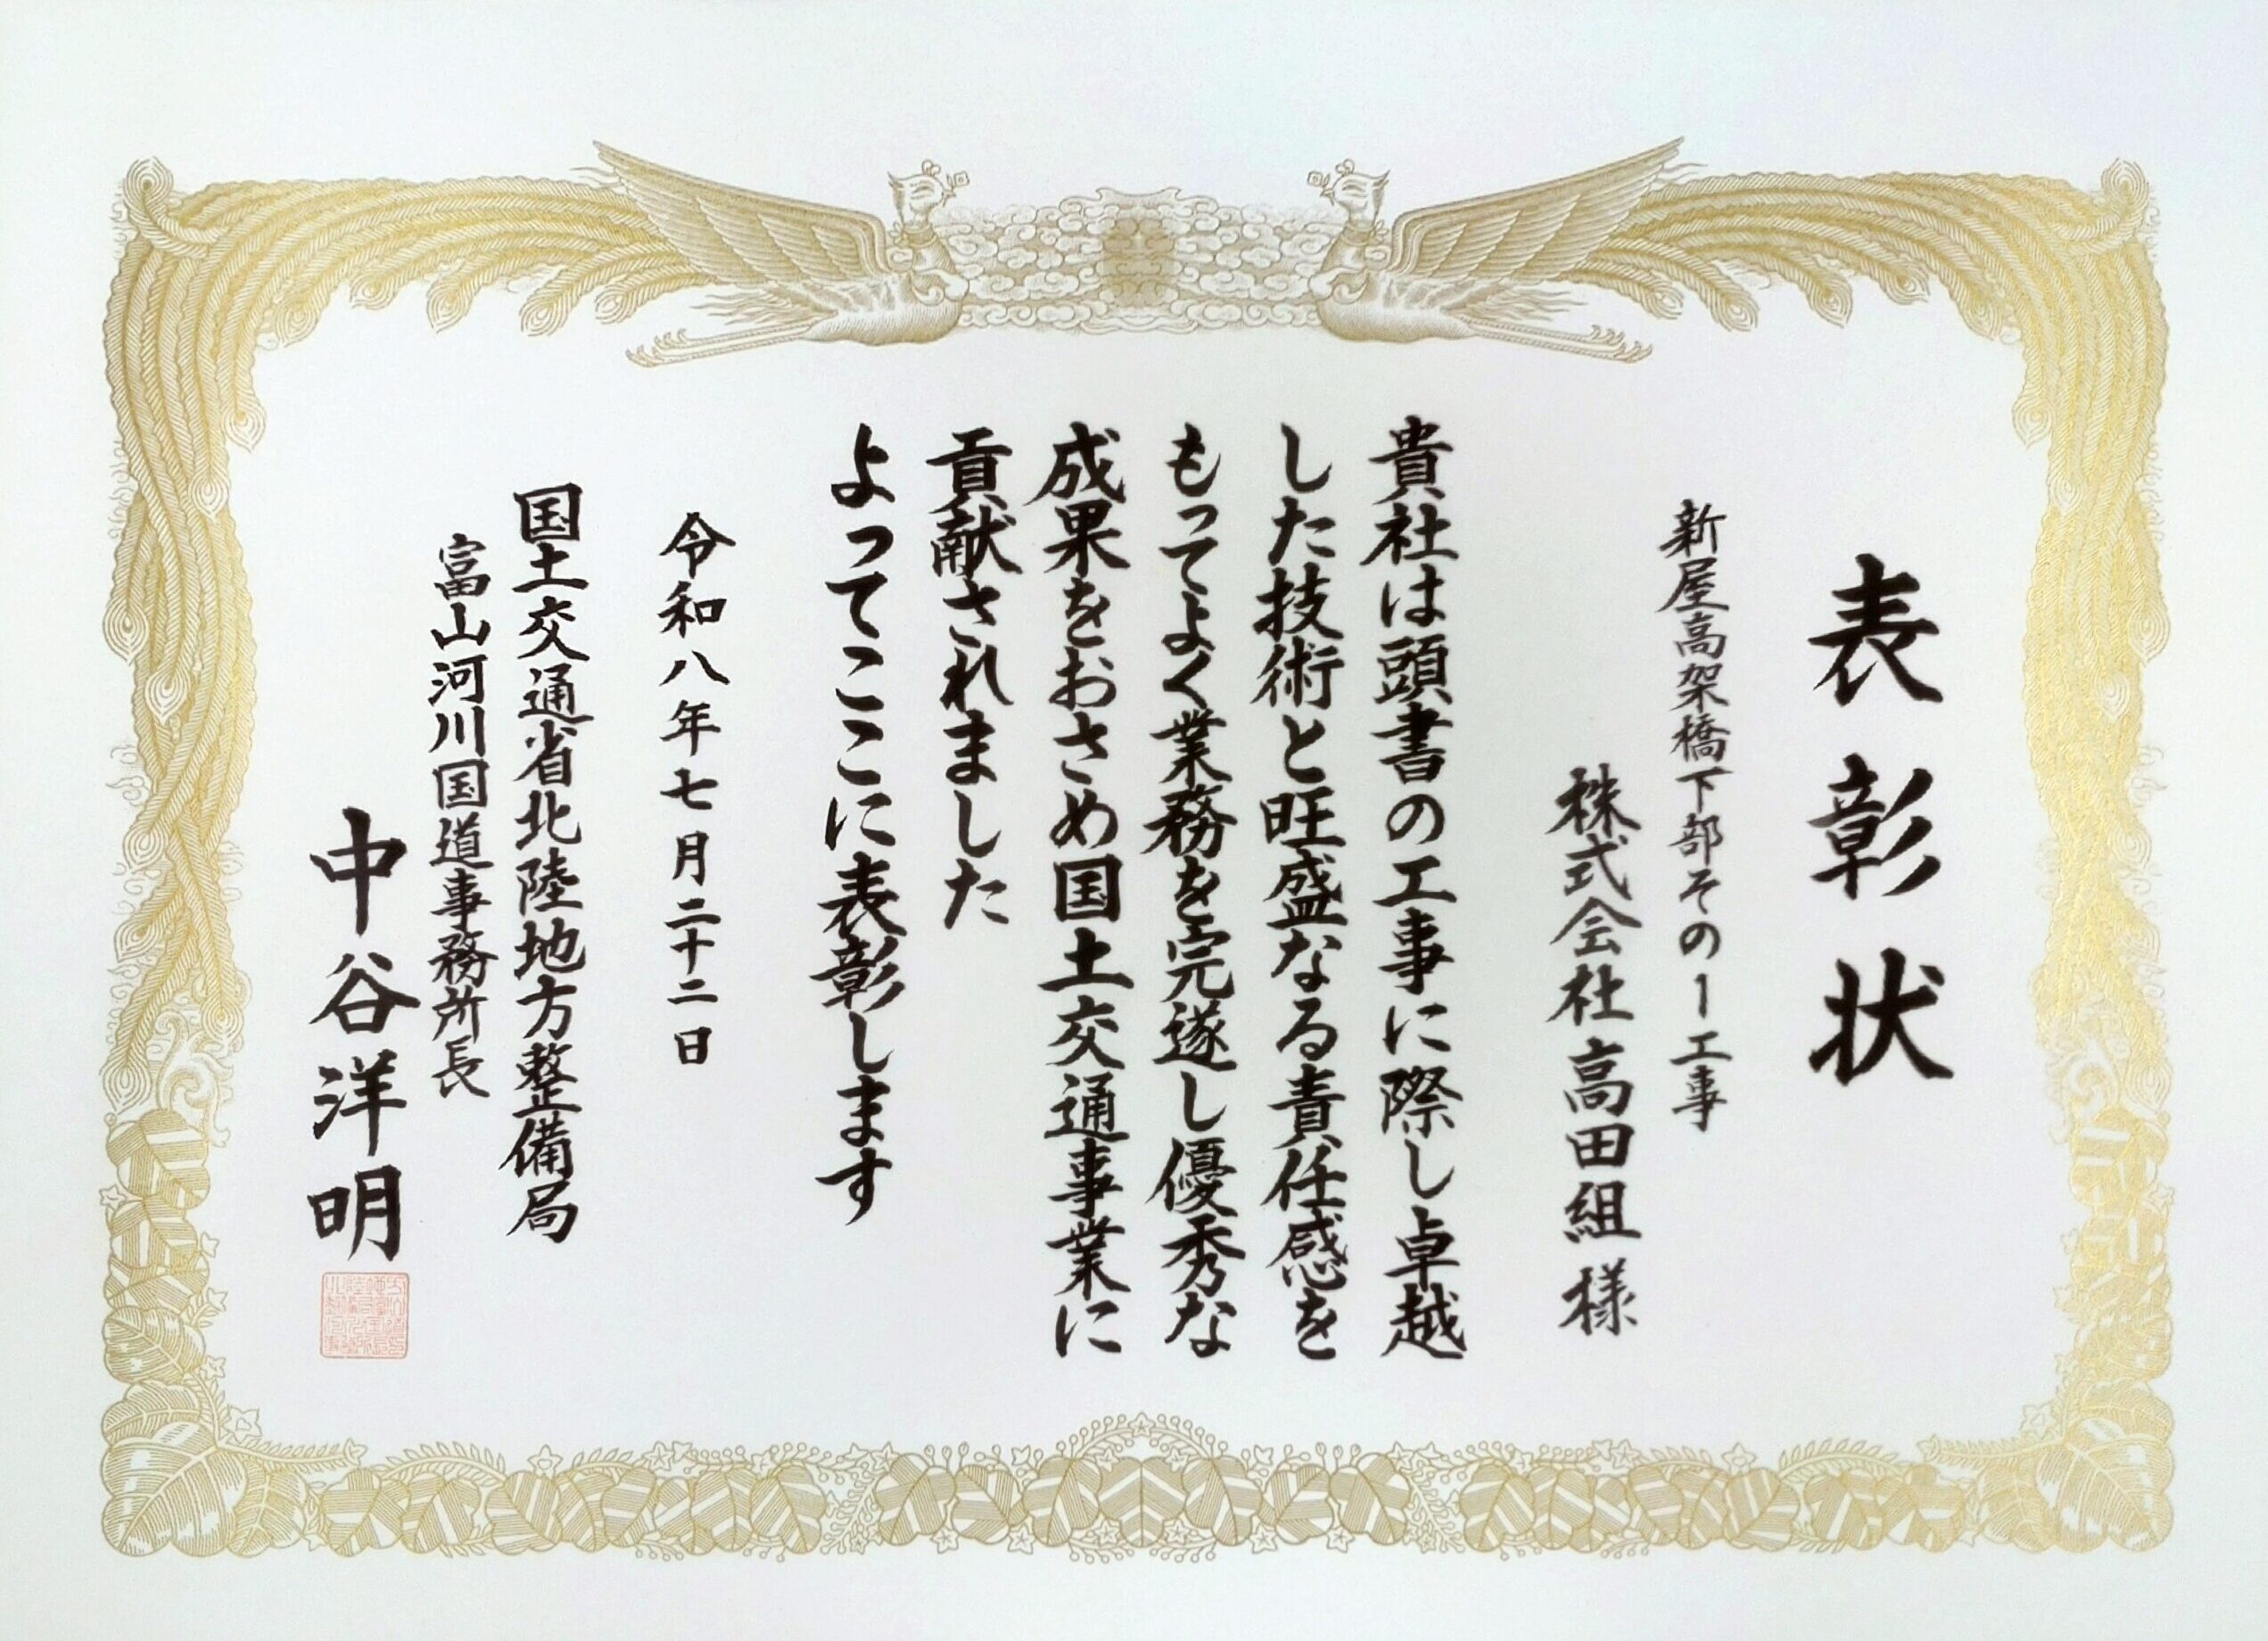 表彰状
新屋高架橋下部その1工事
株式会社高田組様
貴社は頭書の工事に際し卓越
した技術と旺盛なる責任感を
もってよく業務を完遂し優秀な
成果をおさめ国土交通事業に
貢献されました
よってここに表彰します
令和八年七月二十二日
国土交通省北陸地方整備局
富山河川国道事務所長
中谷洋明